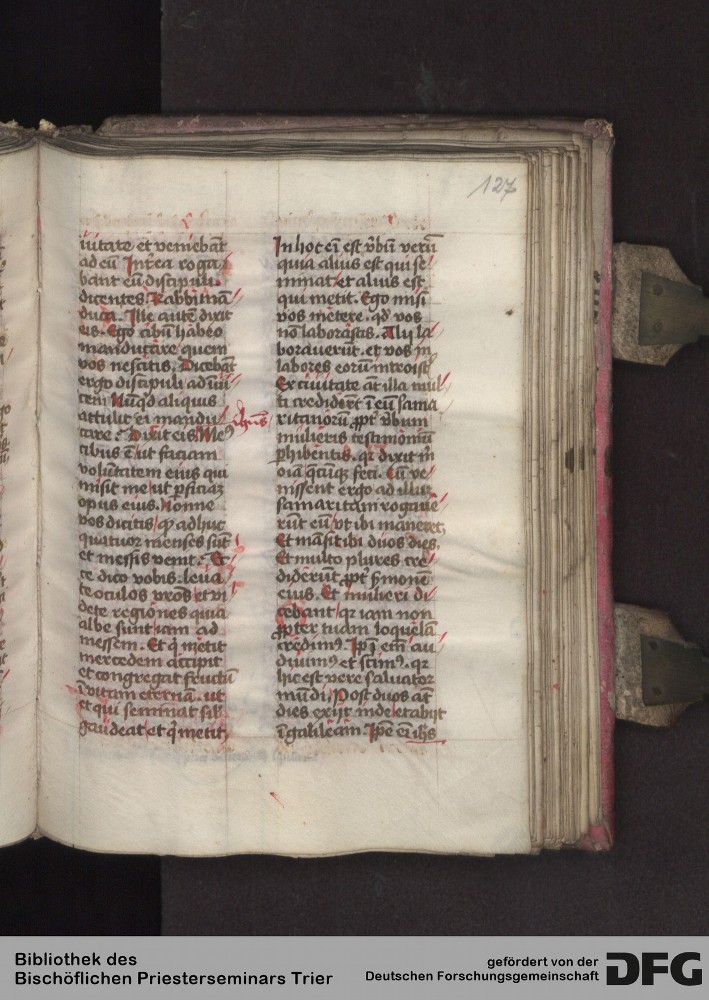 127
iuitate et veniebāt
ad eū Intea roga
bant eū discipuli
dicentes. Rabbi mā
duca. Ille autē dixit
eis. Ego cibū habeo
manducare quem
vos nescitis. Dicebāt
ergo discipuli ad īui
cem Nūqd aliquis
attulit ei mandu
care. Dixit eis Meꝰ
ihūs
cibus ē ut faciam
volūtatem eius qui
misit me ut ꝑficiaꝫ
opus eius. Nonne
vos dicitis qꝫ adhuc
quatuor menses sūt
et messis venit. Ec
ce dico vobis. leua
te oculos vr̄os et vi
dete regiones quia
albe sunt iam ad
messem. Et q̄ metit
mercedem accipit
et congregat fructū
ī vitam eternā. ut
et qui seminat sil̄
gaudeat et q̄ metit
In hoc eī est v̄bū verū
quia alius est qui se
minat et alius est
qui metit. Ego misi
vos metere. qd vos
nō laborastis. Alij la
borauerūt. et vos in
labores eorū introistꝭ
Ex ciuitate āt illa mul
ti crediderūt ī eū sama
ritanorū ꝓpt̄ v̄bum
mulieris testimoniū
ꝑhibentis. qꝛ dixit m̄
oīa q̄cūqꝫ feci. Cū ve
nissent ergo ad illuꝫ
samaritani rogaue
rūt eū vt ibi maneret
Et māsit ibi duos dies.
Et multo plures cre
diderūt ꝓpt̄ ẜmonē
eius. Et mulieri di
cebant qꝛ iam non
ꝓpter tuam loquelā
credimꝰ. Ipī em̄ au
diuimꝰ et scimꝰ. qꝛ
hic est vere saluator
mūdi. Post duos āt
dies exijt inde et abijt
ī galileam. Ipe eī ihs
Bibliothek des
Bischöflichen Priesterseminars Trier
gefördert von der
Deutschen Forschungsgemeinschaft
DFG